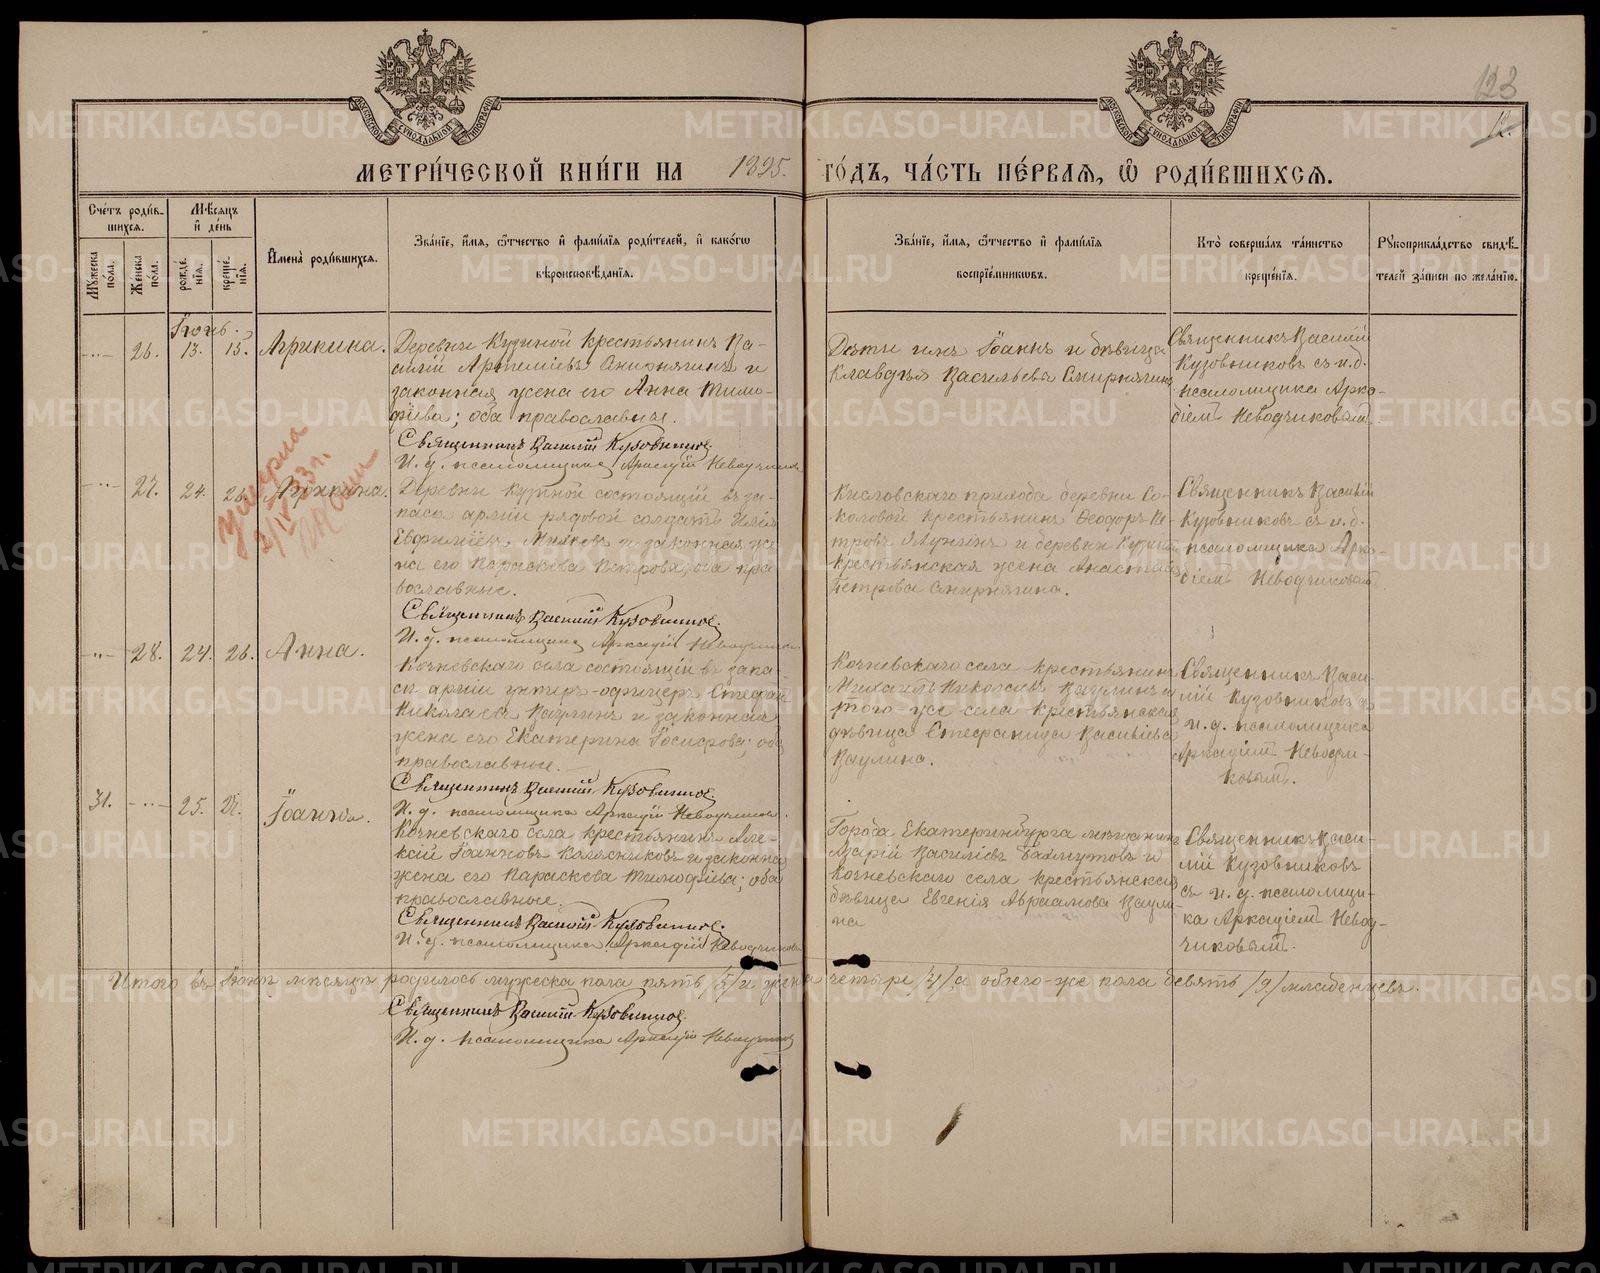 123
12.
МОСКОВСКОЙ СѴНОДАЛЬНОЙ ТИПОГРАФІИ
МОСКОВСКОЙ СѴНОДАЛЬНОЙ ТИПОГРАФІИ
МЕТРИ́ЧЕСКОЙ КНИ́ГИ НА 1895. ГО́ДЪ, ЧА́СТЬ ПЕ́РВАЯ, Ѡ РОДИ́ВШИХСЯ.
Счётъ роди́в-
шихся.
Мѣ́сяцъ
и де́нь
Мꙋжеска
по́ла.
Же́нска
по́ла.
рожде́-
нїя.
креще́-
нїя.
Имена̀ роди́вшихся.
Зва́нїе, и́мя, ѻ҆́тчество и фами́лїя роди́телей, и како́гѡ
вѣроисповѣ́данїя.
Зва́нїе, и́мя, ѻ҆́тчество и фами́лїя
воспрїе́мникѡвъ.
Кто̀ соверша́лъ та́инство
креще́нїя.
Рꙋкоприкла́дство свидѣ́-
телей за́писи по жела́нїю.
Іюнь.
-"- 26. 13. 15. Агрипина.
Деревни Кузиной крестьянинъ Ва-
силій Артеміевъ Смирнягинъ и
законная жена его Анна Тимо-
фѣева; оба православные.
Священникъ Василій Кузовниковъ.
И. д. псаломщика Аркадій Неводчиковъ
Дѣти ихъ Іоаннъ и дѣвица
Клавдія Васильевы Смирнягины
Священникъ Василій
Кузовниковъ съ и. д.
псаломщика Арка-
діемъ Неводчиковымъ
-"- 27. 24. 26. Агрипина.
умерла
Деревни Кузиной состоящій въ за-
пасѣ арміи рядовой солдатъ Илія
Евфиміевъ и законная же-
на его Параскева Петрова; оба пра-
вославные.
Священникъ Василій Кузовниковъ.
И. д. псаломщика Аркадій Неводчиковъ
Кисловскаго прихода деревни Со-
коловой крестьянинъ Ѳеодоръ Пе-
тровъ и деревни Кузиной
крестьянская жена Анастасія
Петрова Смирнягина.
Священникъ Василій
Кузовниковъ съ и. д.
псаломщика Арка-
діемъ Неводчиковымъ
-"- 28. 24. 26. Анна.
Кочневскаго села состоящій въ запа-
сѣ арміи унтеръ-офицеръ Стефанъ
Николаевъ Ваулинъ и законная
жена его Екатерина Іосифова; оба
православные.
Священникъ Василій Кузовниковъ.
И. д. псаломщика Аркадій Неводчиковъ.
Кочневскаго села крестьянинъ
Михаилъ Николаевъ Ваулинъ и
того же села крестьянская
дѣвица Стефанида Васильева
Ваулина.
Священникъ Васи-
лій Кузовниковъ съ
и. д. псаломщика
Аркадіемъ Неводчи-
ковымъ.
31. -"- 25. 27. Іоаннъ.
Кочневскаго села крестьянинъ Але-
ксій Іоанновъ Колясниковъ и законная
жена его Параскева Тимофѣева; оба
православные.
Священникъ Василій Кузовниковъ.
И. д. псаломщика Аркадій Неводчиковъ
Города Екатеринбурга мѣщанинъ
Василіевъ Бахмутовъ и
Кочневскаго села крестьянская
дѣвица Евгенія Авраамова Ваули-
на
Священникъ Васи-
лій Кузовниковъ
съ и. д. псаломщи-
ка Аркадіемъ Невод-
чиковымъ.
Итого въ Іюнѣ мѣсяцѣ родилось мужеска пола пять /5/ и женска четыре /4/ а обоего-же пола девять /9/ младенцевъ.
Священникъ Василій Кузовниковъ.
И. д. псаломщика Аркадій Неводчиковъ
METRIKI.GASO-URAL.RU